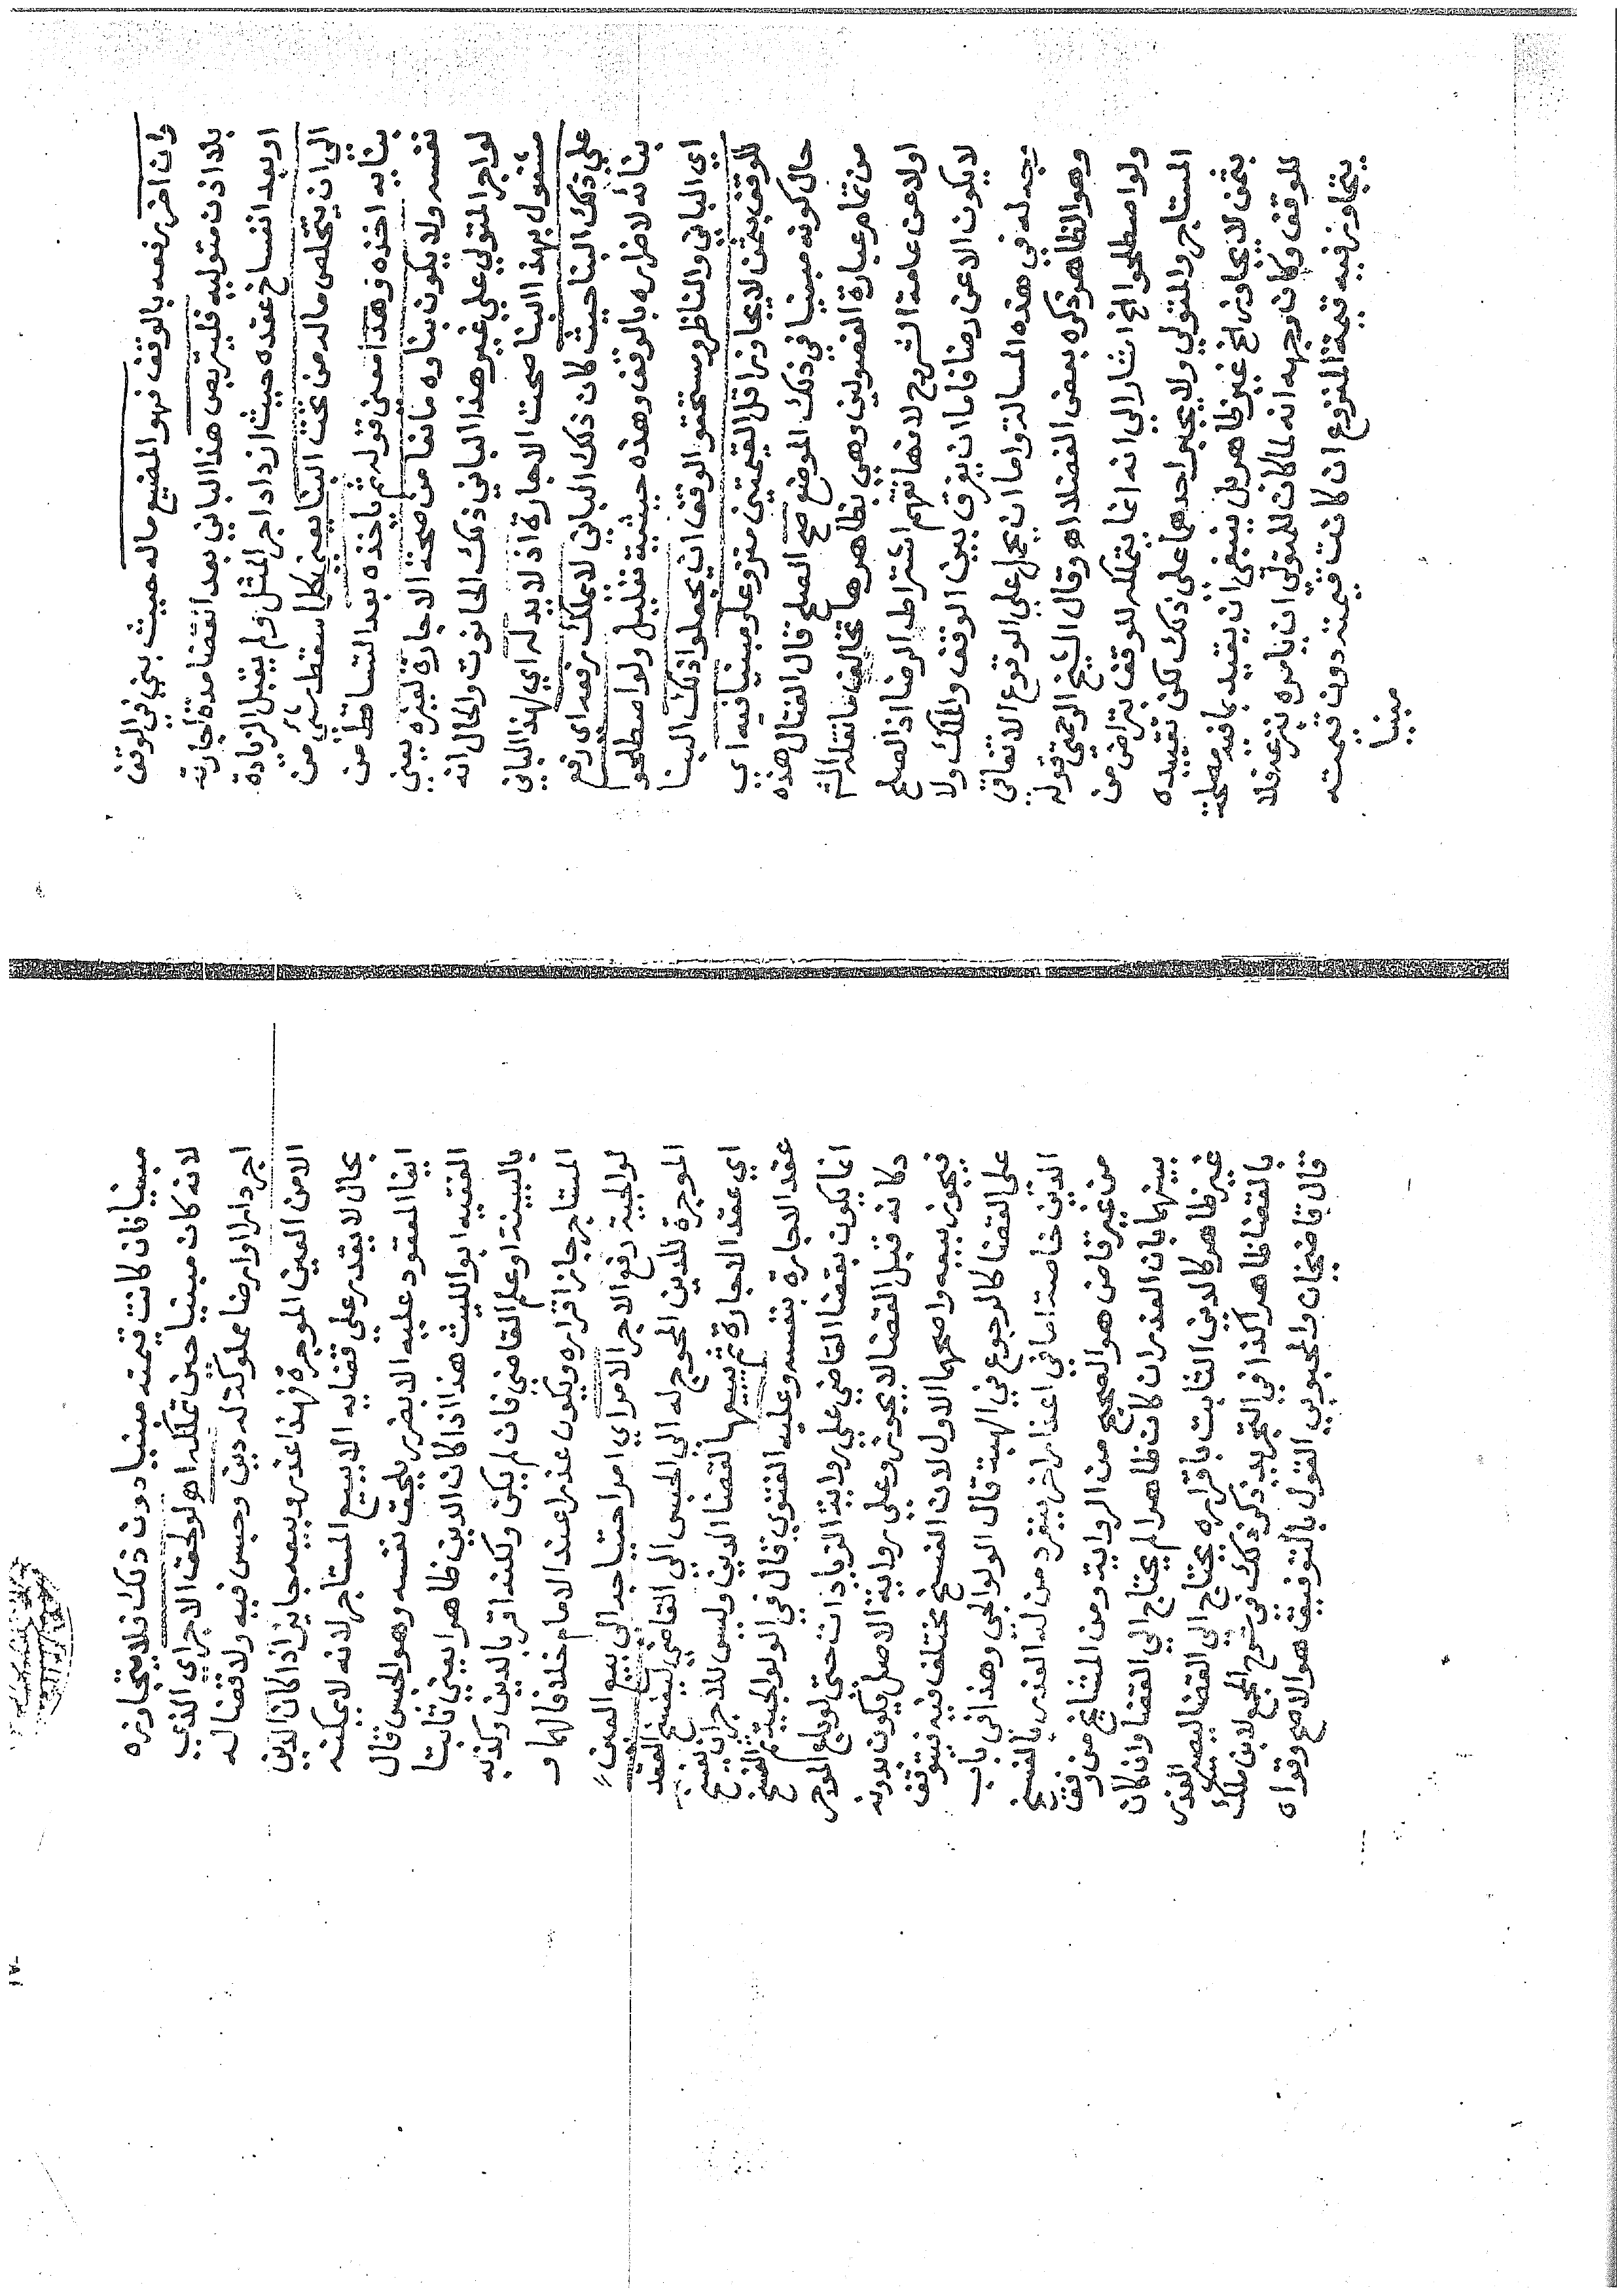 وان اضر رفعه بالوقف فهو المضيع ماله حيث بني في الوقف
بلا اذن متوليه فليتربص هذا الباني بعد انقضا مدة اجارته
او بعد انفساخ عقده حيث ازداد اجر المثل ولم يقبل الزيادة
الي ان يتخلص ماله من تحت البنا يعني كلما سقط شي من
بنايه اخذه وهذا معني قوله ثم ياخذه بعد التساقط من
نفسه ولا يكون بناوه مانعا من صحة الاجارة لغيره يعني
لو اجر المتولي علي غير هذا الباني ذلك الحانوت والحال انه
مشغول بهذا البنا صحت الاجارة اذ لا يد له اي لهذا الباني
علي ذلك البنا حيث كان ذلك الباني لا يملك رفعه اي رفع
بنائه لاضراره بالوقف وهذه حيثية تقليل ولو اصطلحوا
اي الباني والناظر ومستحقو الوقف ان يجعلوا ذلك البنا
للوقف بثمن لا يجاوز اقل القيمتين منزوعا ومبنيا فيه اي
حال كونه مبنيا في ذلك الموضع صح الصلح قال الفتال هذه
من تمام عبارة الفصولين وهي بظاهرها تخالف ما نقله الش
اولا عن عامة الشروح لانها تفهم اشتراط الرضا اذ الصلح
لا يكون الا عن رضا فاما ان يفرق بين الوقف والملك ولا
يجد له في هذه المسالة واما ان يحمل علي الوقوع الاتفاقي
وهو الظاهر ذكره بعض الفضلا اه وقال الشيخ الرحمتي قوله
ولو اصطلحوا الخ اشار الي انه انما يتملكه للوقف بتراض من
المستاجر والمتولي ولا يجبر احدهما علي ذلك لكن تقييده
بثمن لا يجاوز الخ غير ظاهر بل ينبغي ان يقيد بما فيه مصلحة
للوقف وكان وجهه انه لما كان للمتولي ان يامره بنزعه فلا
يتجاوز فيه قيمة المنزوع ان كانت قيمته دون قيمته
مبنيا
مبنيا فان كانت قيمته مبنيا دون ذلك فلا يتجاوزه
لانه كان مبنيا حين تملكه اه لو لحق الاجر اي الذي
اجر دارا او ارضا مملوكة له دين وحبس فيه ولا قضا له
الا من العين الموجرة فهذا عذر وبيعه جايز اذا كان الدين
بحال لا يقدر علي قضايه الا ببيع المستاجر لانه لا يمكنه
ايفا المعقود عليه الا بضرر يلحق نفسه وهو الحبس قال
الفقيه ابو الليث هذا اذا كان الدين ظاهرا يعني ثابتا
بالبينة او علم القاضي فان لم يكن ولكنه اقر بالدين وكذبه
المستاجر جاز اقراره ويكون عذرا عند الامام خلافا لهما و
لو المحبية رفع الاجر الامر اي امر احتياجه الي بيع العين
الموجرة للدين المحوج له الي الحبس الي القاضي ليفسخ العقد
اي عقد الاجارة ثم بيعها لقضا الدين وليس للاجر ان يفسخ
عقد الاجارة بنفسه وعليه الفتوي قال في الولوالجية ثم الفسخ
انما يكون بقضا القاضي علي رواية الزيادات حتي لو باع الموجر
دكانه قبل القضا لا يجوز وعلي رواية الاصل يكون بدونه
فيجوز بيعه واصحهما الاول لان الفسخ مختلف فيه فيتوقف
علي القضا كالرجوع في الهبة قال الولوالجي وهذا في باب
الدين خاصة اما في اعذار اخر ينفرد من له العذر بالفسخ
من غير قاض هو الصحيح من الرواية ومن المشايخ من وفق
بينهما بان العذر ان كان ظاهرا لم يحتاج الي القضا وان كان
غير ظاهر كالدين الثابت باقراره يحتاج الي القضا ليصير العذر
بالقضا ظاهرا كذا في التجريد ذكر ذلك في شرح المجمع لابن ملك
قال قاضيخان والمحبوبي القول بالتوفيق هو الاصح وقواه